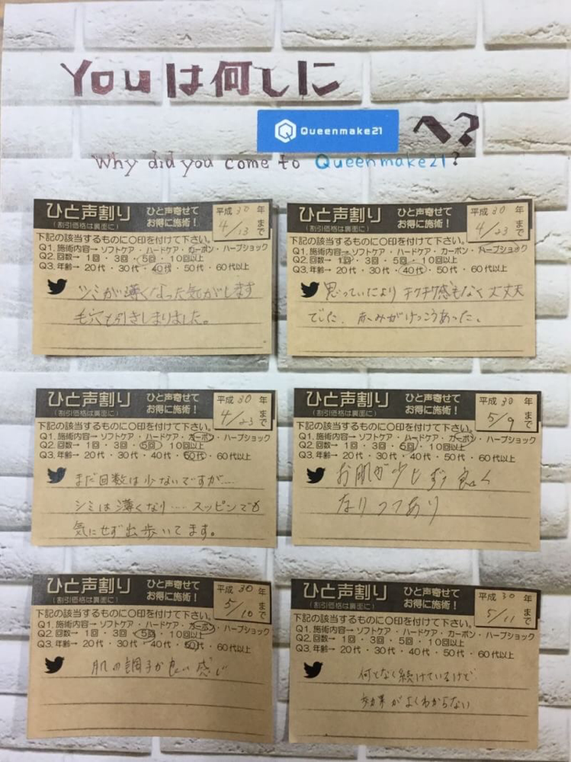 Youは何しに
Queenmake21 へ?
Why did you come to Queenmake21?
ひと声割り ひと声寄せて
(割引価格は裏面に) お得に施術!
平成30年
4/13まで
下記の該当するものに〇印を付けて下さい。
Q1.施術内容→ ソフトケア・ハードケア・カーボン・ハーブショック
Q2.回数→ 1回・3回・5回・10回以上
Q3.年齢→ 20代・30代・40代・50代・60代以上
シミが薄くなった気がします
毛穴も引きしまりました。
ひと声割り ひと声寄せて
(割引価格は裏面に) お得に施術!
平成30年
4/23まで
下記の該当するものに〇印を付けて下さい。
Q1.施術内容→ ソフトケア・ハードケア・カーボン・ハーブショック
Q2.回数→ 1回・3回・5回・10回以上
Q3.年齢→ 20代・30代・40代・50代・60代以上
思っていたより チクチク感もなく大丈夫
でした。 赤みがけっこうあった。
ひと声割り ひと声寄せて
(割引価格は裏面に) お得に施術!
平成30年
4/23まで
下記の該当するものに〇印を付けて下さい。
Q1.施術内容→ ソフトケア・ハードケア・カーボン・ハーブショック
Q2.回数→ 1回・3回・5回・10回以上
Q3.年齢→ 20代・30代・40代・50代・60代以上
まだ回数は少ないですが…
シミは薄くなり… スッピンでも
気にせず出歩いてます。
ひと声割り ひと声寄せて
(割引価格は裏面に) お得に施術!
平成30年
5/9まで
下記の該当するものに〇印を付けて下さい。
Q1.施術内容→ ソフトケア・ハードケア・カーボン・ハーブショック
Q2.回数→ 1回・3回・5回・10回以上
Q3.年齢→ 20代・30代・40代・50代・60代以上
お肌が少しずつ良く
なりつつあり
ひと声割り ひと声寄せて
(割引価格は裏面に) お得に施術!
平成30年
5/10まで
下記の該当するものに〇印を付けて下さい。
Q1.施術内容→ ソフトケア・ハードケア・カーボン・ハーブショック
Q2.回数→ 1回・3回・5回・10回以上
Q3.年齢→ 20代・30代・40代・50代・60代以上
肌の調子が良い感じ
ひと声割り ひと声寄せて
(割引価格は裏面に) お得に施術!
平成30年
5/11まで
下記の該当するものに〇印を付けて下さい。
Q1.施術内容→ ソフトケア・ハードケア・カーボン・ハーブショック
Q2.回数→ 1回・3回・5回・10回以上
Q3.年齢→ 20代・30代・40代・50代・60代以上
何となく続けているけど
効果がよくわからない